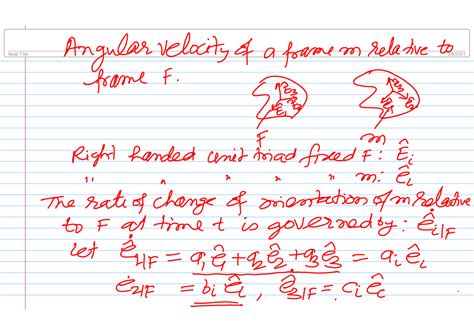 Note Title
Angular velocity of a frame m relative to
frame F.
F m
Right handed unit triad fixed F : Êᵢ
" " " " " m : êᵢ
The rate of change of orientation of m relative
to F at time t is governed by : ė̂ᵢ|F
let ė̂₁|F = a₁ê₁ + a₂ê₂ + a₃ê₃ = aᵢêᵢ
ė̂₂|F = bᵢêᵢ , ė̂₃|F = cᵢêᵢ